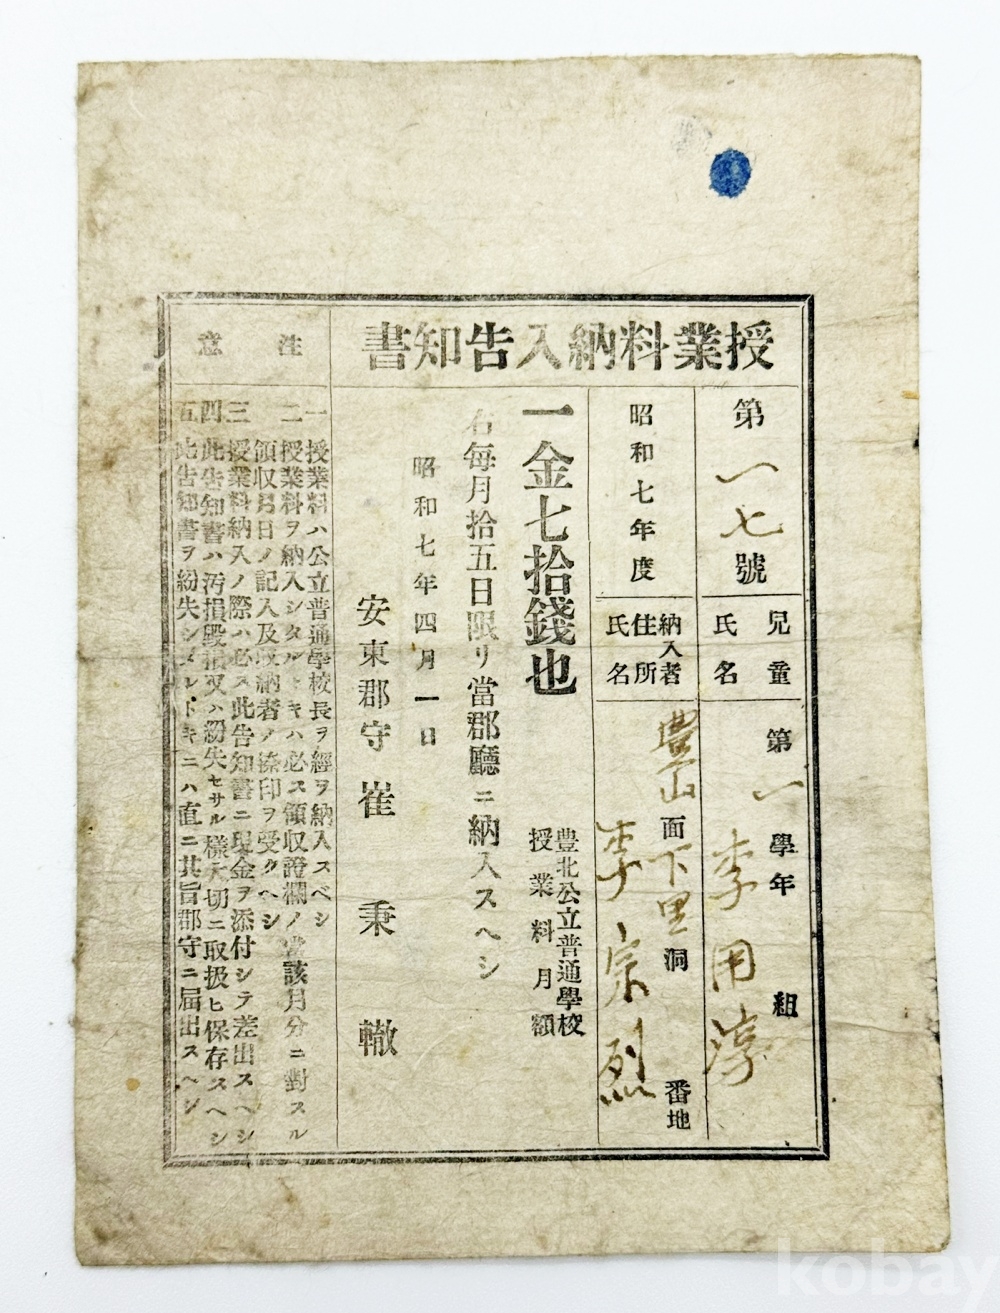 授業料納入告知書
第一七號
兒童氏名
第一學年 組
李用淳
昭和七年度
納入者住所氏名
豊山面下里洞 番地
李宗烈
一金七拾錢也
豊北公立普通學校
授業料月額
右每月拾五日限リ當郡廳ニ納入スヘシ
昭和七年四月一日
安東郡守 崔秉轍
注意
一 授業料ハ公立普通學校長ヲ經ヲ納入スベシ
二 授業料ヲ納入シタルトキハ必ス領収證欄ノ當該月分ニ對スル
領収月日ノ記入及収納者ノ捺印ヲ受クヘシ
三 授業料納入ノ際ハ必ス此告知書ニ現金ヲ添付シテ差出スヘシ
四 此告知書ハ汚損毀損又ハ紛失セサル樣大切ニ取扱ヒ保存スヘシ
五 此告知書ヲ紛失シタルトキニハ直ニ其旨郡守ニ届出スヘシ
kobay